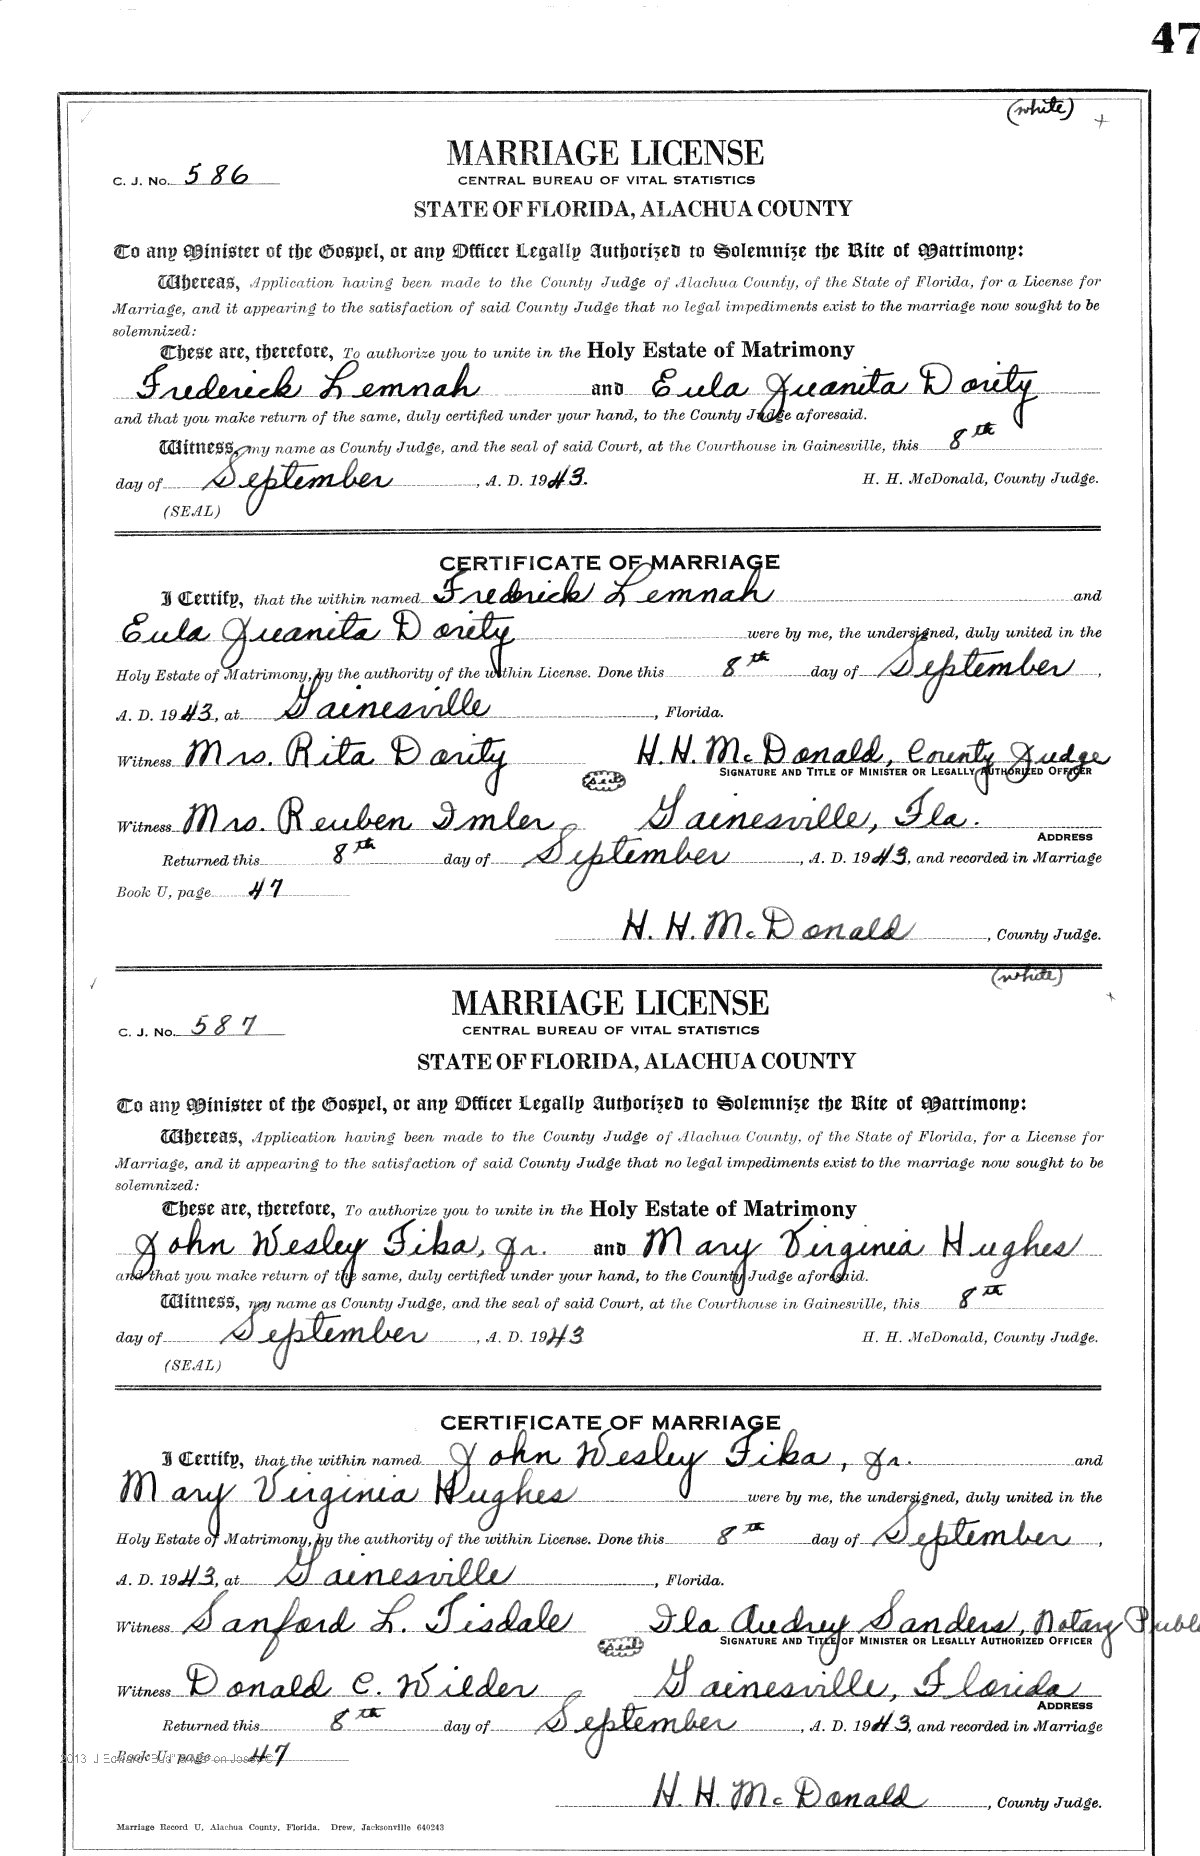 47
(white)
MARRIAGE LICENSE
C. J. No. 586
CENTRAL BUREAU OF VITAL STATISTICS
STATE OF FLORIDA, ALACHUA COUNTY
To any Minister of the Gospel, or any Officer Legally Authorized to Solemnize the Rite of Matrimony:
Whereas, Application having been made to the County Judge of Alachua County, of the State of Florida, for a License for
Marriage, and it appearing to the satisfaction of said County Judge that no legal impediments exist to the marriage now sought to be
solemnized:
These are, therefore, To authorize you to unite in the Holy Estate of Matrimony
Frederick Lemnah and Eula Juanita Dority
and that you make return of the same, duly certified under your hand, to the County Judge aforesaid.
Witness, my name as County Judge, and the seal of said Court, at the Courthouse in Gainesville, this 8th
day of September, A. D. 1943. H. H. McDonald, County Judge.
(SEAL)
CERTIFICATE OF MARRIAGE
I Certify, that the within named Frederick Lemnah and
Eula Juanita Dority were by me, the undersigned, duly united in the
Holy Estate of Matrimony, by the authority of the within License. Done this 8th day of September,
A. D. 1943, at Gainesville, Florida.
Witness Mrs. Rita Dority H. H. McDonald, County Judge
(seal) SIGNATURE AND TITLE OF MINISTER OR LEGALLY AUTHORIZED OFFICER
Witness Mrs. Reuben Imler Gainesville, Fla.
ADDRESS
Returned this 8th day of September, A. D. 1943, and recorded in Marriage
Book U, page 47
H. H. McDonald, County Judge.
(white)
MARRIAGE LICENSE
C. J. No. 587
CENTRAL BUREAU OF VITAL STATISTICS
STATE OF FLORIDA, ALACHUA COUNTY
To any Minister of the Gospel, or any Officer Legally Authorized to Solemnize the Rite of Matrimony:
Whereas, Application having been made to the County Judge of Alachua County, of the State of Florida, for a License for
Marriage, and it appearing to the satisfaction of said County Judge that no legal impediments exist to the marriage now sought to be
solemnized:
These are, therefore, To authorize you to unite in the Holy Estate of Matrimony
John Wesley Fika, Jr. and Mary Virginia Hughes
and that you make return of the same, duly certified under your hand, to the County Judge aforesaid.
Witness, my name as County Judge, and the seal of said Court, at the Courthouse in Gainesville, this 8th
day of September, A. D. 1943 H. H. McDonald, County Judge.
(SEAL)
CERTIFICATE OF MARRIAGE
I Certify, that the within named John Wesley Fika, Jr. and
Mary Virginia Hughes were by me, the undersigned, duly united in the
Holy Estate of Matrimony, by the authority of the within License. Done this 8th day of September,
A. D. 1943, at Gainesville, Florida.
Witness Sanford L. Tisdale Ila Audrey Sanders, Notary Publ
(seal) SIGNATURE AND TITLE OF MINISTER OR LEGALLY AUTHORIZED OFFICER
Witness Donald C. Wilder Gainesville, Florida
ADDRESS
Returned this 8th day of September, A. D. 1943, and recorded in Marriage
Book U, page 47
H. H. McDonald, County Judge.
Marriage Record U, Alachua County, Florida. Drew, Jacksonville 640243